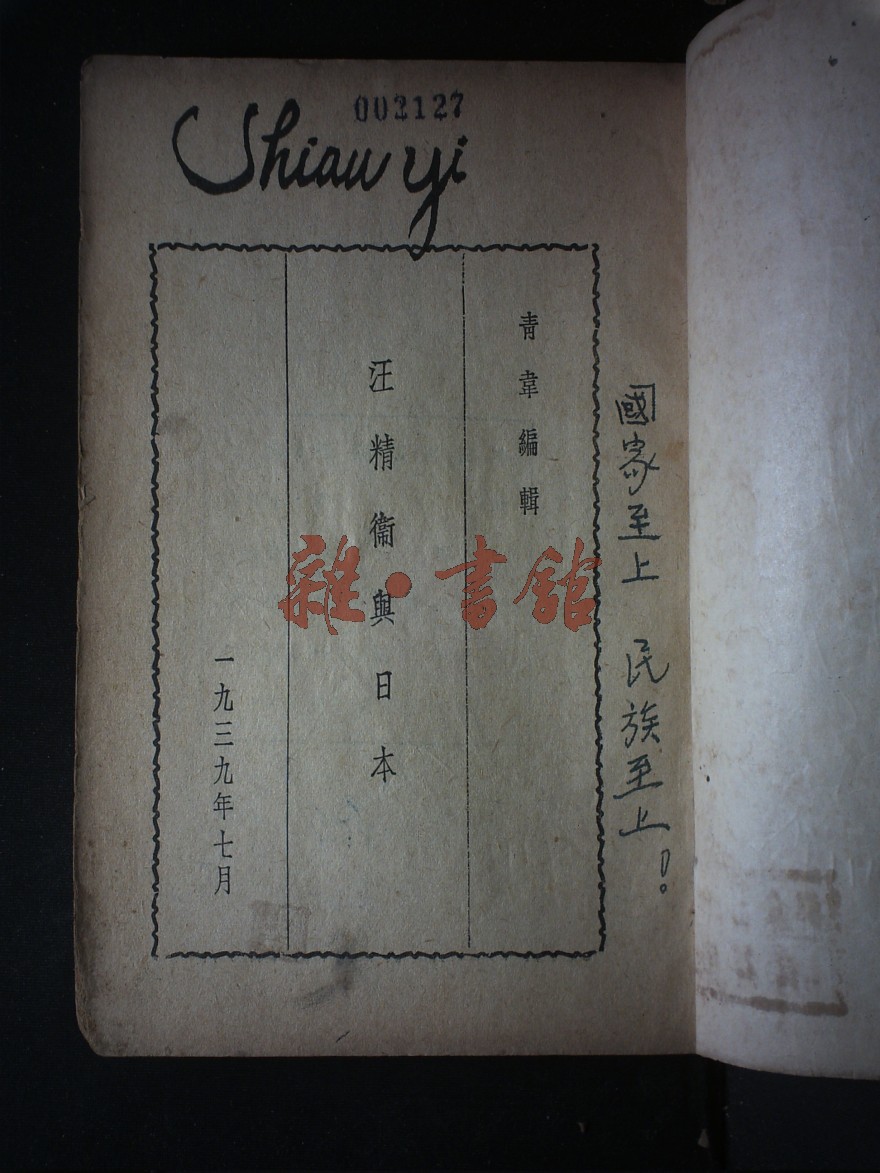 002127
Shiau yi
國家至上 民族至上！
青韋編輯
汪精衞與日本
一九三九年七月
雜·書館